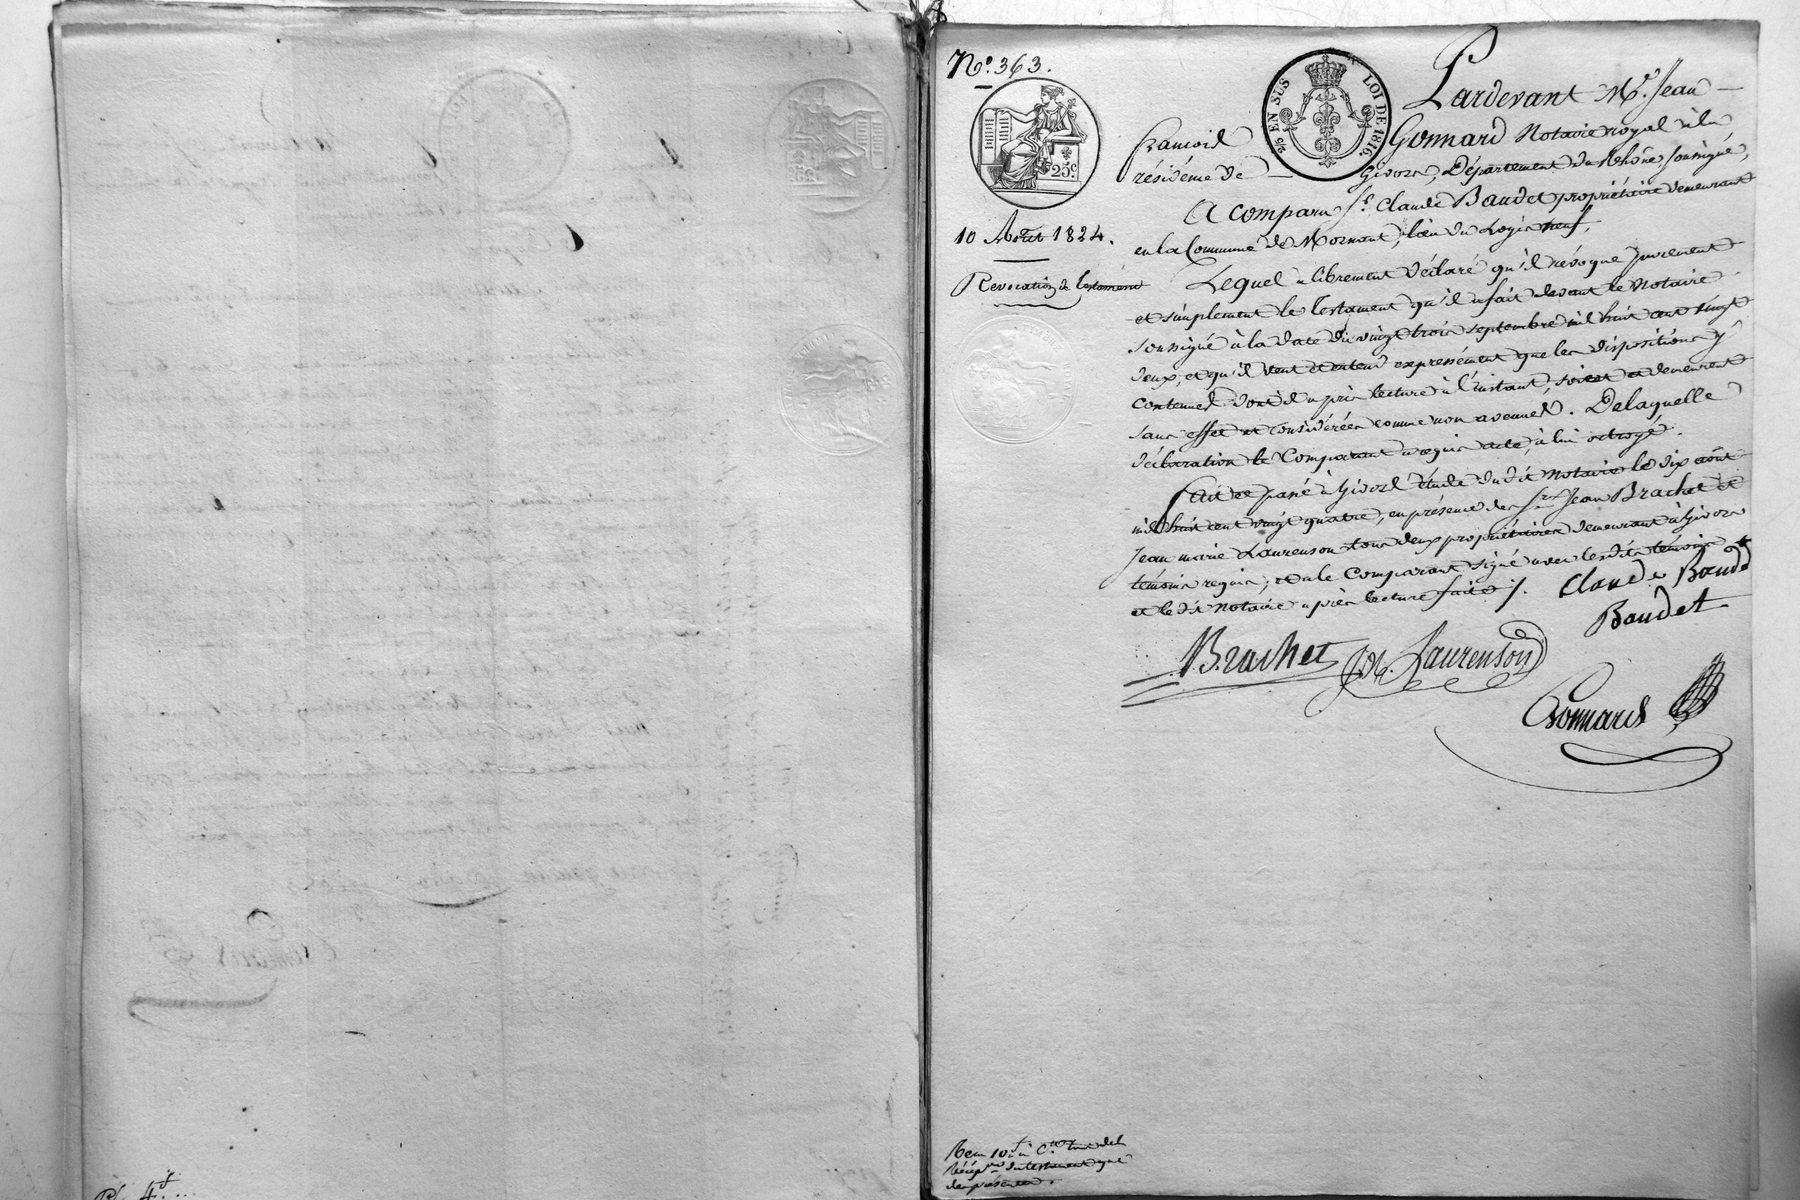 N.° 363.
Pardevant M.e Jean
EN SUS
LOI DE 1816.
25 c.
François
Gonnard Notaire royal à la
résidence de Givors, Département du Rhône soussigné,
A comparu s.r Claude Baudet propriétaire demeurant
10 Août 1824.
en la Commune de Mornant, lieu du Logis neuf,
Révocation de testament
Lequel a librement déclaré qu'il révoque purement
et simplement le testament qu'il a fait devant le Notaire
soussigné à la date du vingt trois septembre mil huit cent vingt
deux, et qu'il veut et entend expressément que les dispositions y
contenues dont il a pris lecture à l'instant, soient et demeurent
sans effet et considérées comme non avenues. Delaquelle
déclaration le Comparant a requis acte, à lui octroyé.
Fait et passé à Givors étude du dit Notaire le dix août
mil huit cent vingt quatre, en présence des s.rs Jean Brachet et
Jean marie Laurenson tous deux propriétaires demeurant à Givors
témoins requis; et a le Comparant signé avec lesdits témoins
et le dit Notaire après lecture faite /. Claude Baudet
Baudet
Brachet J.M. Laurenson
Gonnard